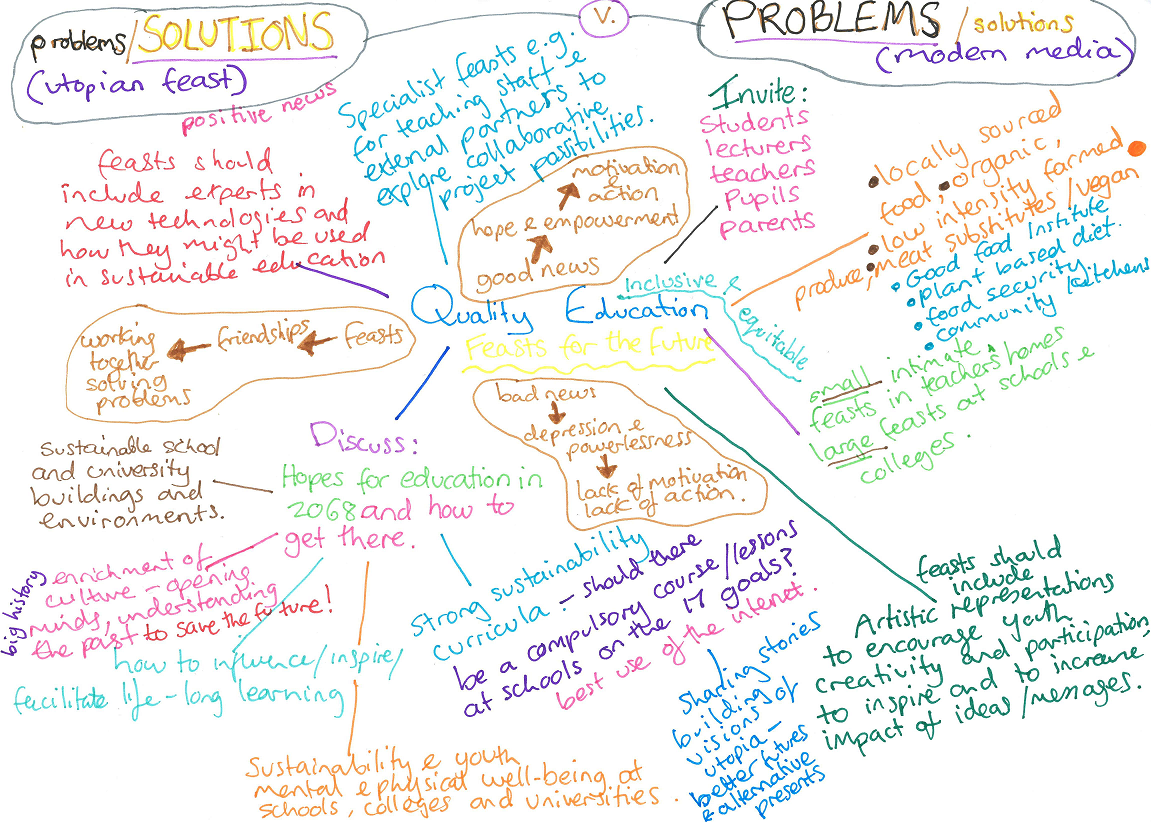 problems/SOLUTIONS
(utopian feast)
V.
PROBLEMS/solutions
(modern media)
positive news
feasts should
include experts in
new technologies and
how they might be used
in sustainable education
Specialist feasts e.g.
for teaching staff &
external partners to
explore collaborative
project possibilities.
motivation
&
action
hope & empowerment
good news
Invite:
Students
lecturers
teachers
Pupils
parents
locally sourced
food, organic,
low intensity farmed
produce, meat substitutes/vegan
Good food Institute
plant based diet.
food security
community kitchens
Quality Education
inclusive &
equitable
Feasts for the future
working
together
solving
problems
friendships
Feasts
small intimate
feasts in teachers homes
large feasts at schools &
colleges.
bad news
depression &
powerlessness
lack of motivation
lack of action.
Discuss:
Hopes for education in
2068 and how to
get there.
Sustainable school
and university
buildings and
environments.
big history
enrichment of
culture – opening
minds, understanding
the past to save the future!
how to influence/inspire/
facilitate life-long learning
Strong sustainability
curricula – should there
be a compulsory course/lessons
at schools on the 17 goals?
best use of the internet.
Sustainability & youth
mental & physical well-being at
schools, colleges and universities.
Sharing stories
building
visions of
utopia –
better futures
& alternative
presents
feasts should
include
Artistic representations
to encourage youth
creativity and participation,
to inspire and to increase
impact of ideas/messages.